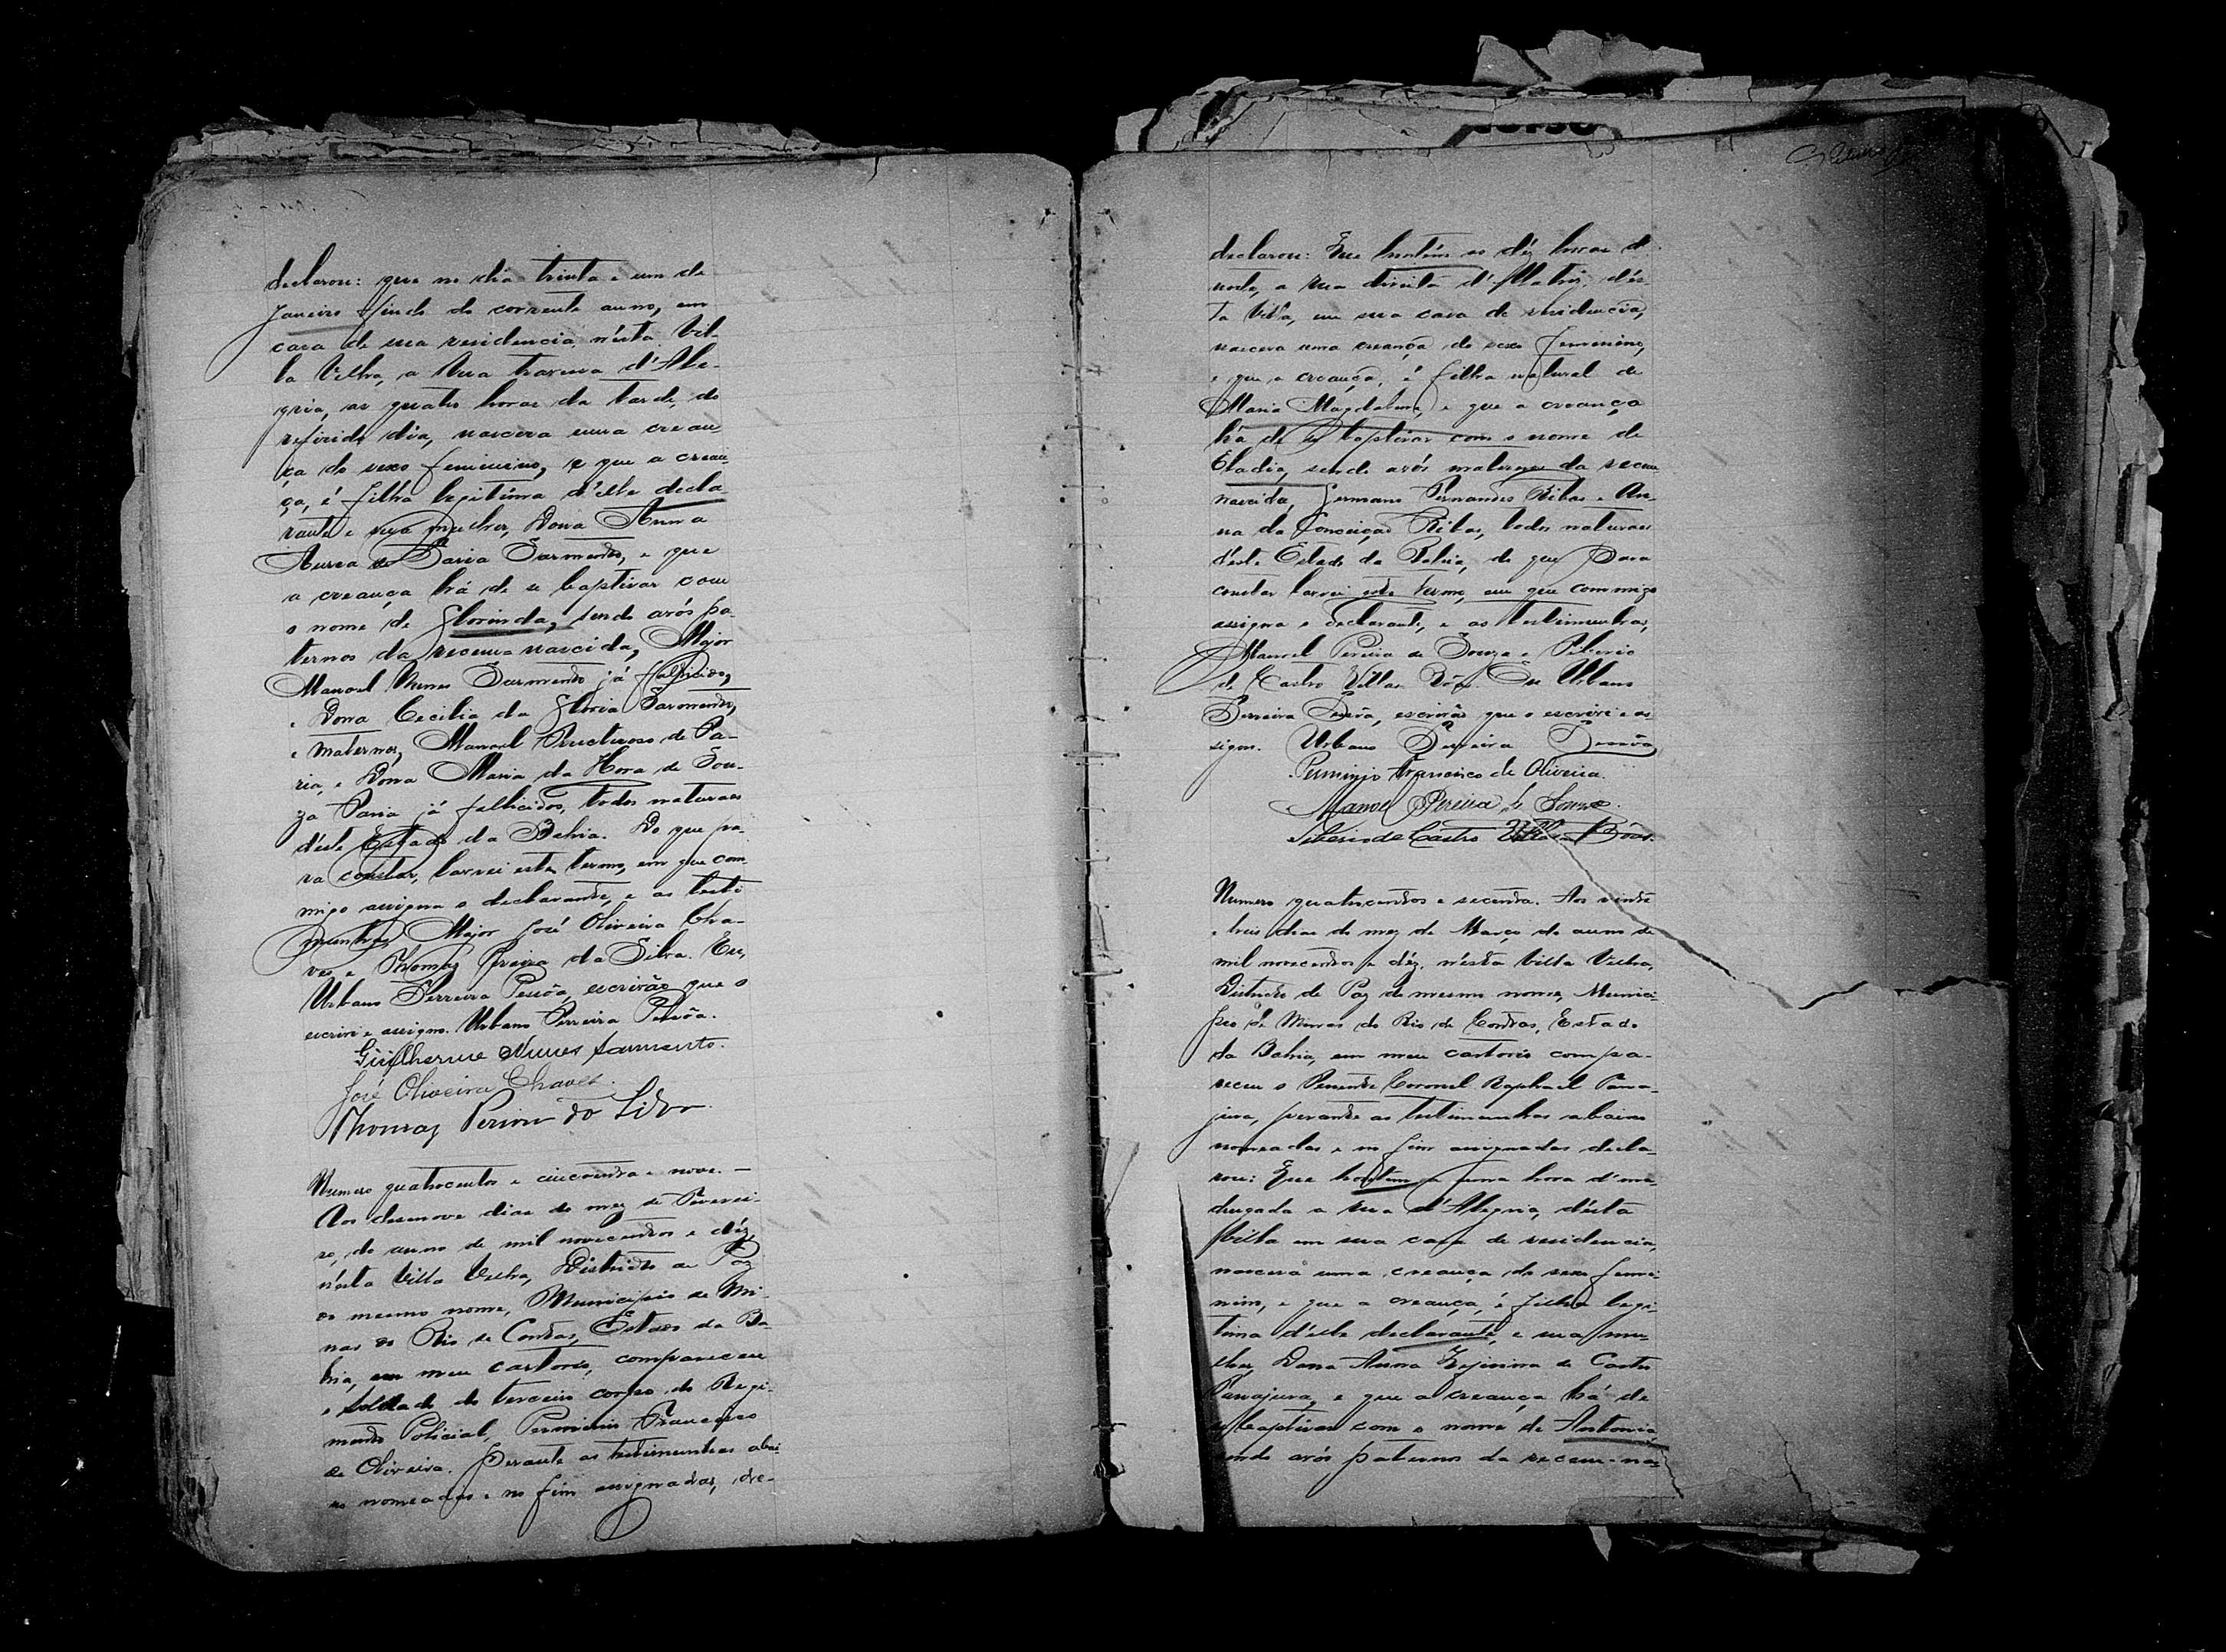 declarou: que no dia trinta e um de
Janeiro findo do corrente anno, em
casa de sua residencia, n'ésta Vil-
la Velha, a Rua travessa d'Ale-
gria, as quatro horas da tarde, do
referido dia, nascera uma crean
ça do sexo feminino, e que a crean-
ça, é filha legitima d'elle decla
rante e sua mulher, Dona Anna
Aurea de Faria Sarmento, e que
a creança há de se baptisar com
o nome de Florinda, sendo avós pa-
ternos da recem-nascida, Major
Manoel Nunes Sarmento já fallicido,
e Dona Cecilia da Gloria Sarmento,
e maternos, Manoel Fructuoso de Fa-
ria, e Dona Maria da Hora de Sou-
za Faria já fallicidos, todos naturaes
déste Estado da Bahia. Do que pa-
ra constar, larvei este termo, em que com
migo assigna o declarante, e as testi
munhas Major José Oliveira Cha-
ves e Thomaz Pereira da Silva. Eu,
Urbano Ferreira Pessôa, escrivão que o
escrivi e assigno. Urbano Ferreira Pessôa.
Guilherme Nunes Sarmento.
José Oliveira Chaves.
Thomaz Pereira da Silva.
Numero quatrocentos e cincoenta e nove. —
Aos desenove dias do mez de Feverei-
ro, do anno de mil novecentos e déz,
n'ésta Villa Velha, Districto de Paz
do mesmo nome, Municipio de Mi-
nas do Rio de Contas, Estado da Ba-
hia, em meu cartorio, compareceu
o soldado do terceiro corpo do Regi-
mento Policial, Perminio Francisco
de Oliveira. Perante as testimunhas abai
xo nomeadas e no fim assignadas, de-
declarou: Que hontém as déz horas da
noite, a rua direita d'Matriz, dés-
ta Villa, em sua casa de residencia,
nascera uma creança do sexo feminino,
e que a creança, é filha natural de
Maria Magdalena, e que a creança
há de se baptisar com o nome de
Eladia, sendo avós maternos da recem
nascida, Germano Fernandes Ribas e An-
na da Conceição Ribas, todos naturaes
déste Estado da Bahia, do que para
constar larvei este termo, em que commigo
assigna o declarante, e as testimunhas,
Manoel Pereira de Souza e Tiberio
de Castro Villas Bôas. Eu Urbano
Ferreira Pessôa, escrivão que o escrivi e as-
signo. Urbano Ferreira Pessôa
Perminio Francisco de Oliveira.
Manoel Pereira de Souza.
Tiberio de Castro Villas Bôas.
Numero quatrocentos e secenta. Aos vinte
e treis dias do mez de Março do anno de
mil novecentos e déz, n'ésta Villa Velha,
Districto de Paz do mesmo nome, Munici-
pio de Minas do Rio de Contas, Estado
da Bahia, em meu cartorio compa-
receu o Tenente Coronel Raphael Tana-
jura, perante as testimunhas abaixo
nomeadas e no fim assignadas decla-
rou: Que hontem a uma hora d'ma-
drugada a rua d'Alegria, désta
Villa em sua casa de residencia,
nascera uma creança do sexo femi-
nino, e que a creança, é filha legi-
tima d'elle declarante, e sua mu-
lher Dona Anna de Castro
Tanajura, e que a creança há de
se baptisar com o nome de Antonia,
sendo avós paternos da recem-nas